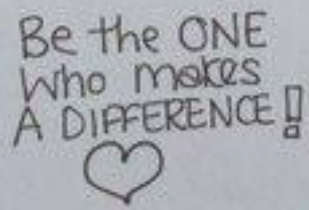 Be the ONE
Who makes
A DIFFERENCE!